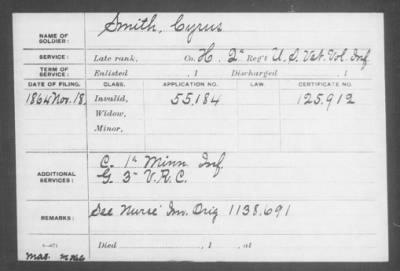 NAME OF SOLDIER: Smith, Cyrus
SERVICE: Late rank, Co. H. 2d Reg't U.S. Vet. Vol. Inf
TERM OF SERVICE: Enlisted , 1 Discharged , 1
DATE OF FILING. CLASS. APPLICATION NO. LAW. CERTIFICATE NO.
1864 Nov. 18, Invalid, 55,184 125,912
Widow,
Minor,
ADDITIONAL SERVICES: C. 1st Minn Inf
G. 3d V.R.C.
REMARKS: See Nurse Inv. Orig 1138.691
Died , 1 , at